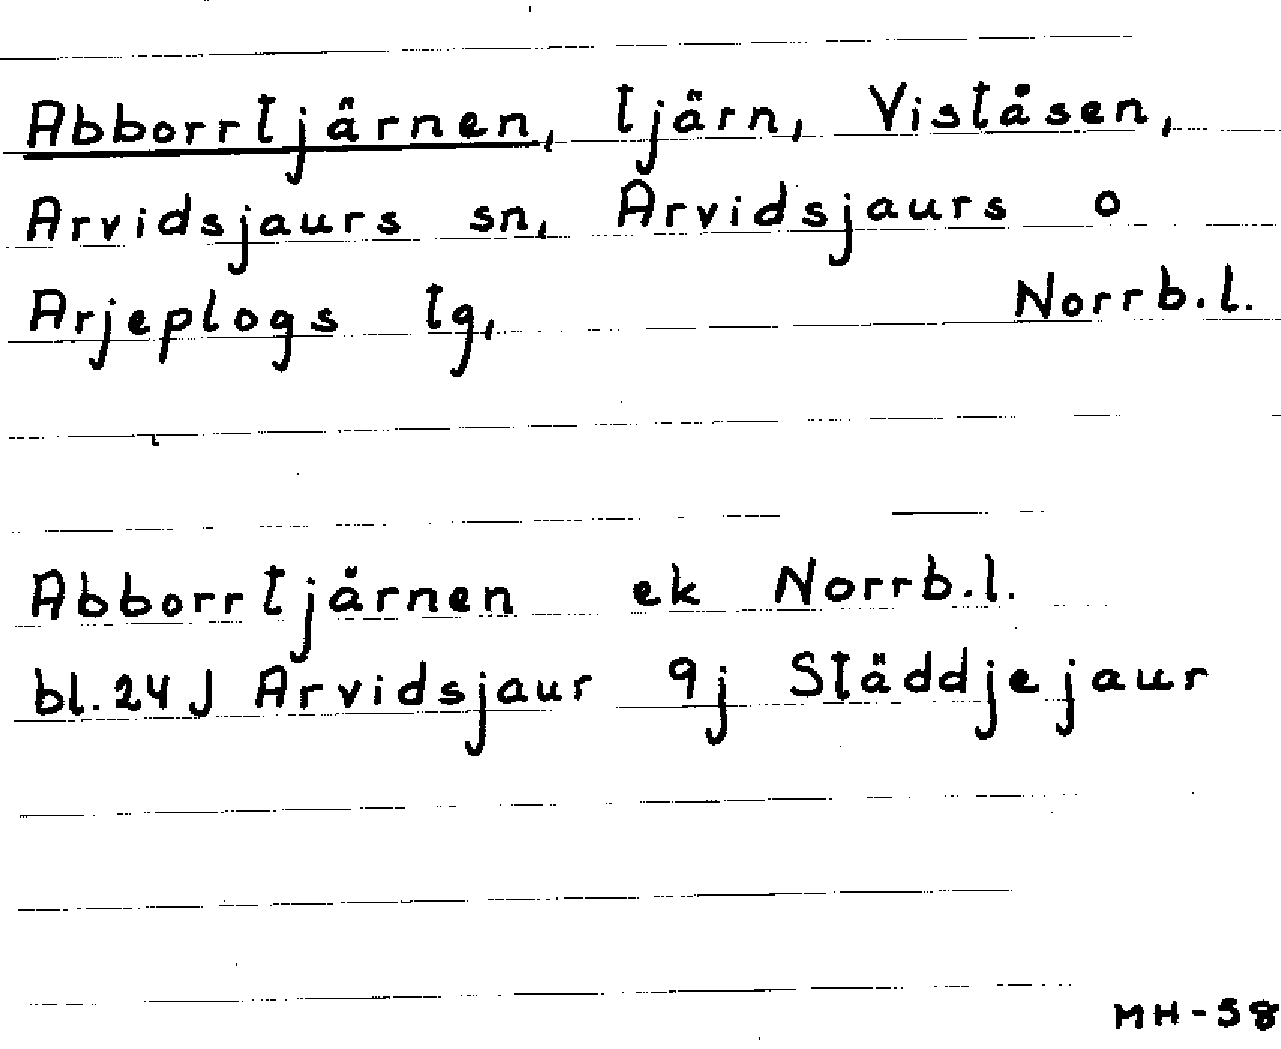 Abborrtjärnen, tjärn, Viståsen,
Arvidsjaurs sn, Arvidsjaurs o
Arjeplogs tg, Norrb.l.
Abborrtjärnen ek Norrb.l.
bl.24J Arvidsjaur 9j Ståddjejaur
MH-58